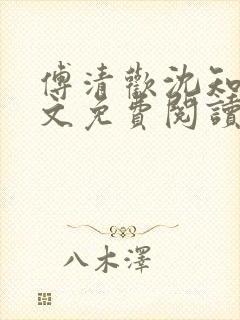 傅清歡沈知
文免費閱讀
八木澤